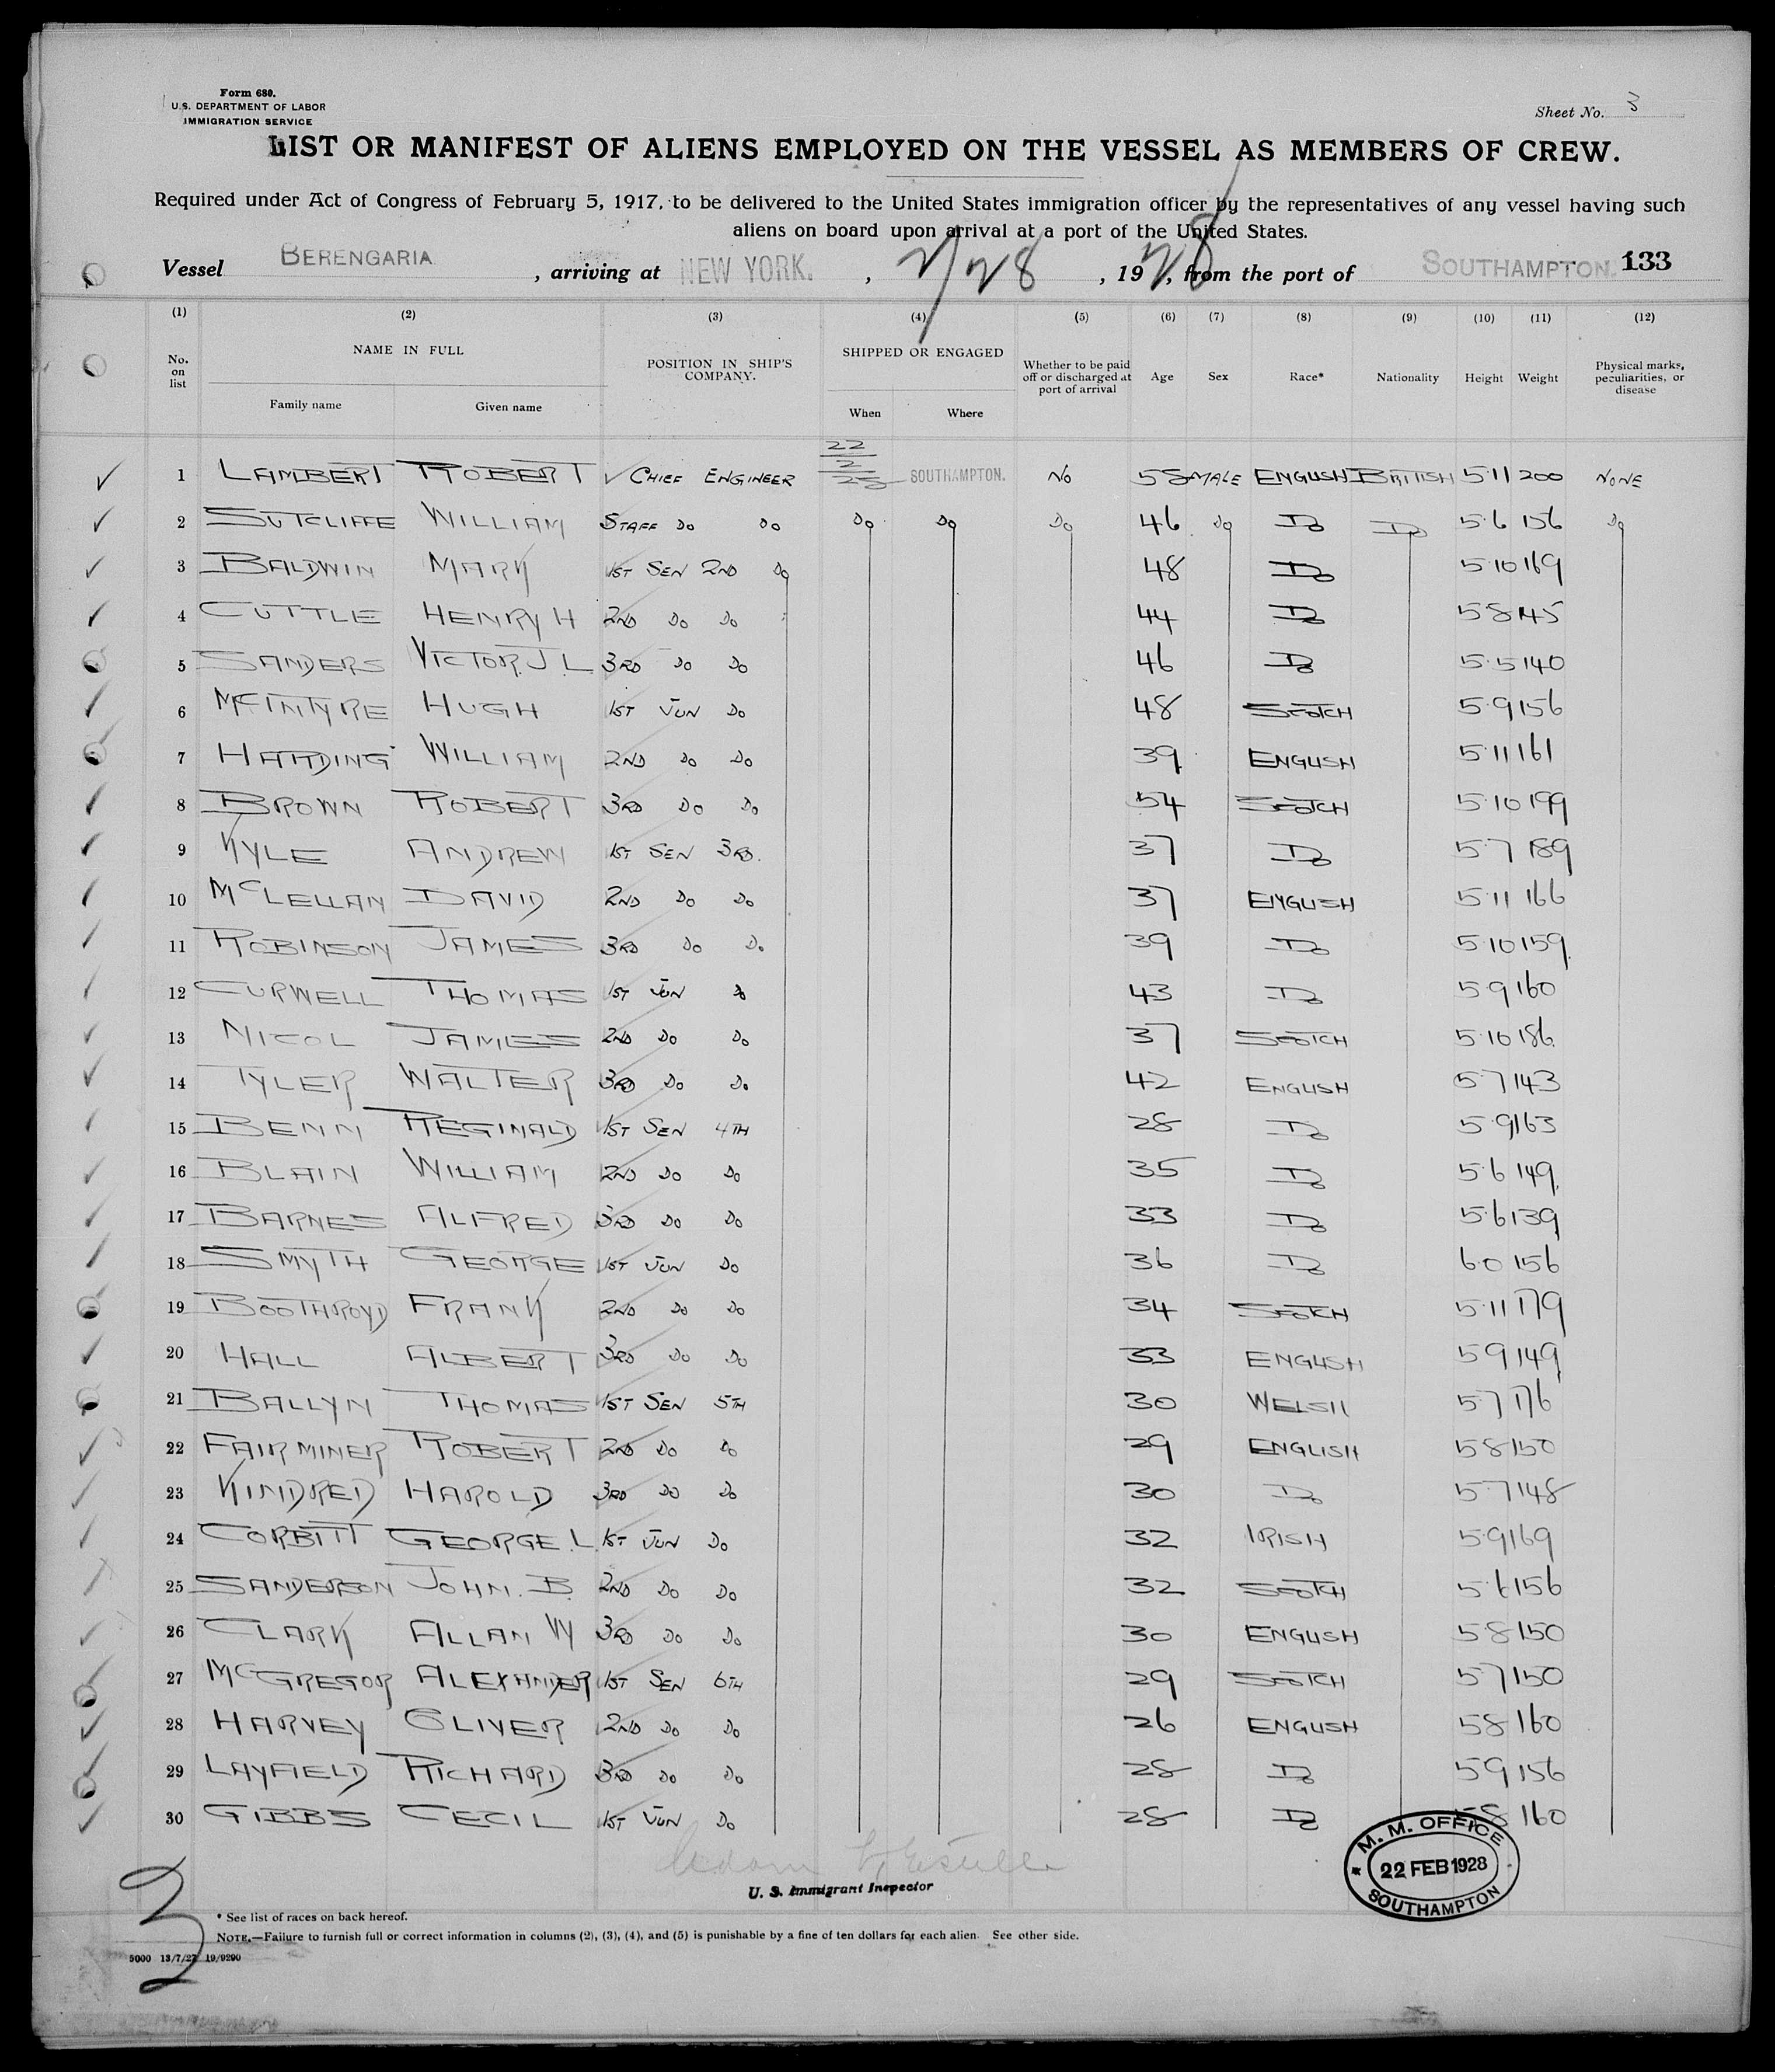 Form 680.
U.S. DEPARTMENT OF LABOR
IMMIGRATION SERVICE
Sheet No. 3
LIST OR MANIFEST OF ALIENS EMPLOYED ON THE VESSEL AS MEMBERS OF CREW.
Required under Act of Congress of February 5, 1917, to be delivered to the United States immigration officer by the representatives of any vessel having such
aliens on board upon arrival at a port of the United States.
Vessel BERENGARIA, arriving at NEW YORK., 1928, from the port of SOUTHAMPTON. 133
(1) (2) (3) (4) (5) (6) (7) (8) (9) (10) (11) (12)
No. on list NAME IN FULL Family name Given name POSITION IN SHIP'S COMPANY. SHIPPED OR ENGAGED When Where Whether to be paid off or discharged at port of arrival Age Sex Race* Nationality Height Weight Physical marks, peculiarities, or disease
1 LAMBERT ROBERT CHIEF ENGINEER 22/2/28 SOUTHAMPTON. NO 58 MALE ENGLISH BRITISH 5·11 200 NONE
2 SUTCLIFFE WILLIAM STAFF DO DO DO DO DO 46 DO DO DO 5·6 156 DO
3 BALDWIN MARK 1ST SEN 2ND DO 48 DO 5·10 169
4 CUTTLE HENRY H 2ND DO DO 44 DO 5·8 145
5 SANDERS VICTOR. J L 3RD DO DO 46 DO 5·5 140
6 MCINTYRE HUGH 1ST JUN DO 48 SCOTCH 5·9 156
7 HARDING WILLIAM 2ND DO DO 39 ENGLISH 5·11 161
8 BROWN ROBERT 3RD DO DO 54 SCOTCH 5·10 199
9 KYLE ANDREW 1ST SEN 3RD. 37 DO 5·7 189
10 MCLELLAN DAVID 2ND DO DO 37 ENGLISH 5·11 166
11 ROBINSON JAMES 3RD DO DO 39 DO 5·10 159
12 CURWELL THOMAS 1ST JUN DO 43 DO 5·9 160
13 NICOL JAMES 2ND DO DO 37 SCOTCH 5·10 186
14 TYLER WALTER 3RD DO DO 42 ENGLISH 5·7 143
15 BENN REGINALD 1ST SEN 4TH 28 DO 5·9 163
16 BLAIN WILLIAM 2ND DO DO 35 DO 5·6 149
17 BARNES ALFRED 3RD DO DO 33 DO 5·6 139
18 SMYTH GEORGE 1ST JUN DO 36 DO 6·0 156
19 BOOTHROYD FRANK 2ND DO DO 34 SCOTCH 5·11 179
20 HALL ALBERT 3RD DO DO 33 ENGLISH 5·9 149
21 BALLYN THOMAS 1ST SEN 5TH 30 WELSH 5·7 176
22 FAIRMINER ROBERT 2ND DO DO 29 ENGLISH 5·8 150
23 KINDRED HAROLD 3RD DO DO 30 DO 5·7 148
24 CORBITT GEORGE. L. 1ST JUN DO 32 IRISH 5·9 169
25 SANDERSON JOHN. B. 2ND DO DO 32 SCOTCH 5·6 156
26 CLARK ALLAN W 3RD DO DO 30 ENGLISH 5·8 150
27 MCGREGOR ALEXANDER 1ST SEN 6TH 29 SCOTCH 5·7 150
28 HARVEY OLIVER 2ND DO DO 26 ENGLISH 5·8 160
29 LAYFIELD RICHARD 3RD DO DO 28 DO 5·9 156
30 GIBBS CECIL 1ST JUN DO 28 DO 5·8 160
U. S. Immigrant Inspector
M. M. OFFICE
22 FEB 1928
SOUTHAMPTON
* See list of races on back hereof.
NOTE.—Failure to furnish full or correct information in columns (2), (3), (4), and (5) is punishable by a fine of ten dollars for each alien. See other side.
5000 13/7/27 19/9290